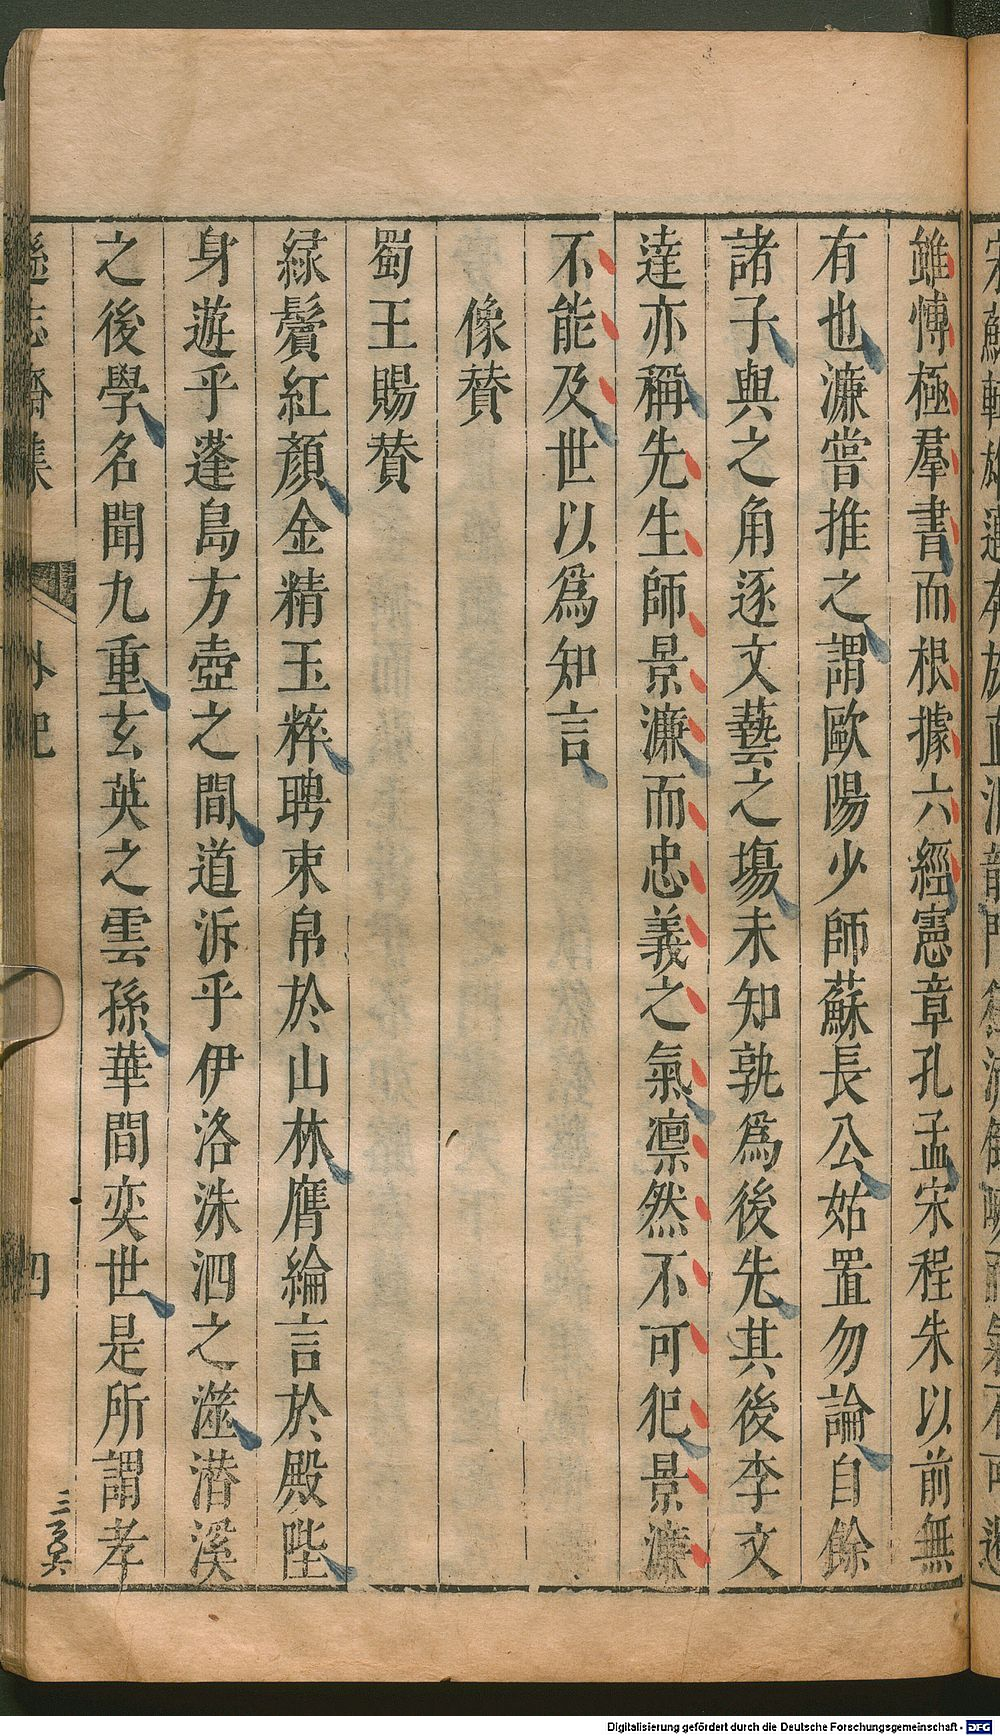 雖博極羣書而根據六經憲章孔孟宋程朱以前無
有也濂嘗推之謂歐陽少師蘇長公姑置勿論自餘
諸子與之角逐文藝之塲未知孰爲後先其後李文
達亦稱先生師景濂而忠義之氣凛然不可犯景濂
不能及世以爲知言
像賛
蜀王賜賛
緑鬢紅顏金精玉粹聘束帛於山林膺綸言於殿陛
身遊乎蓬島方壺之間道泝乎伊洛洙泗之澨潜溪
之後學名聞九重玄英之雲孫華間奕世是所謂孝
遜志齋集
外紀
四
Digitalisierung gefördert durch die Deutsche Forschungsgemeinschaft - DFG